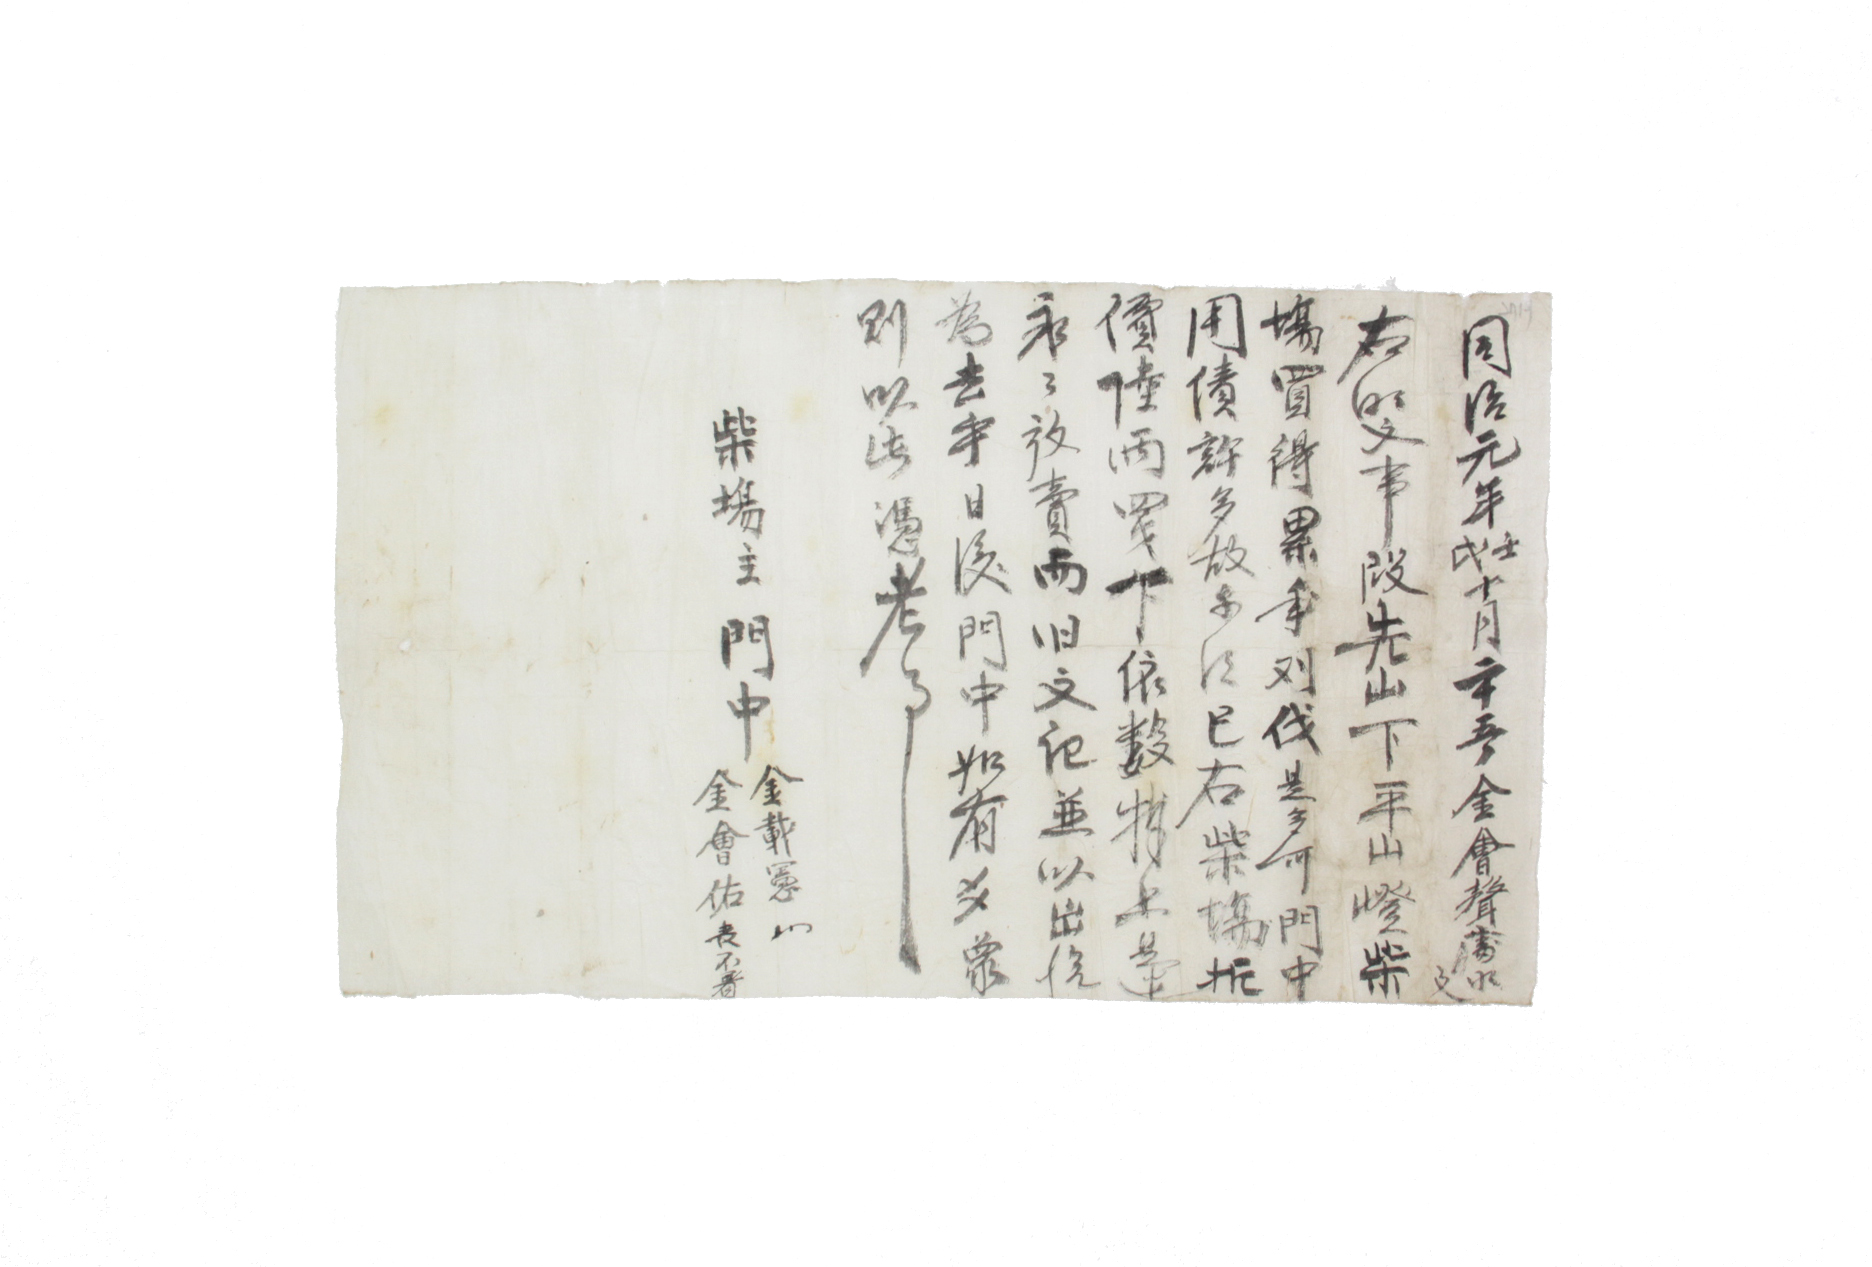 同治元年壬戌十月二十五日 金會聲前明文
右明文事段先山下平山嶝柴
場買得累年刈伐是多可門中
用債許多故不得已右柴場折
價陸兩罡下依數捧上是遣
永〻放賣而旧文記並以出給
爲去乎日後門中如有爻象
則以此憑考事
柴場主 門中
金載憲
金會佑 喪不着